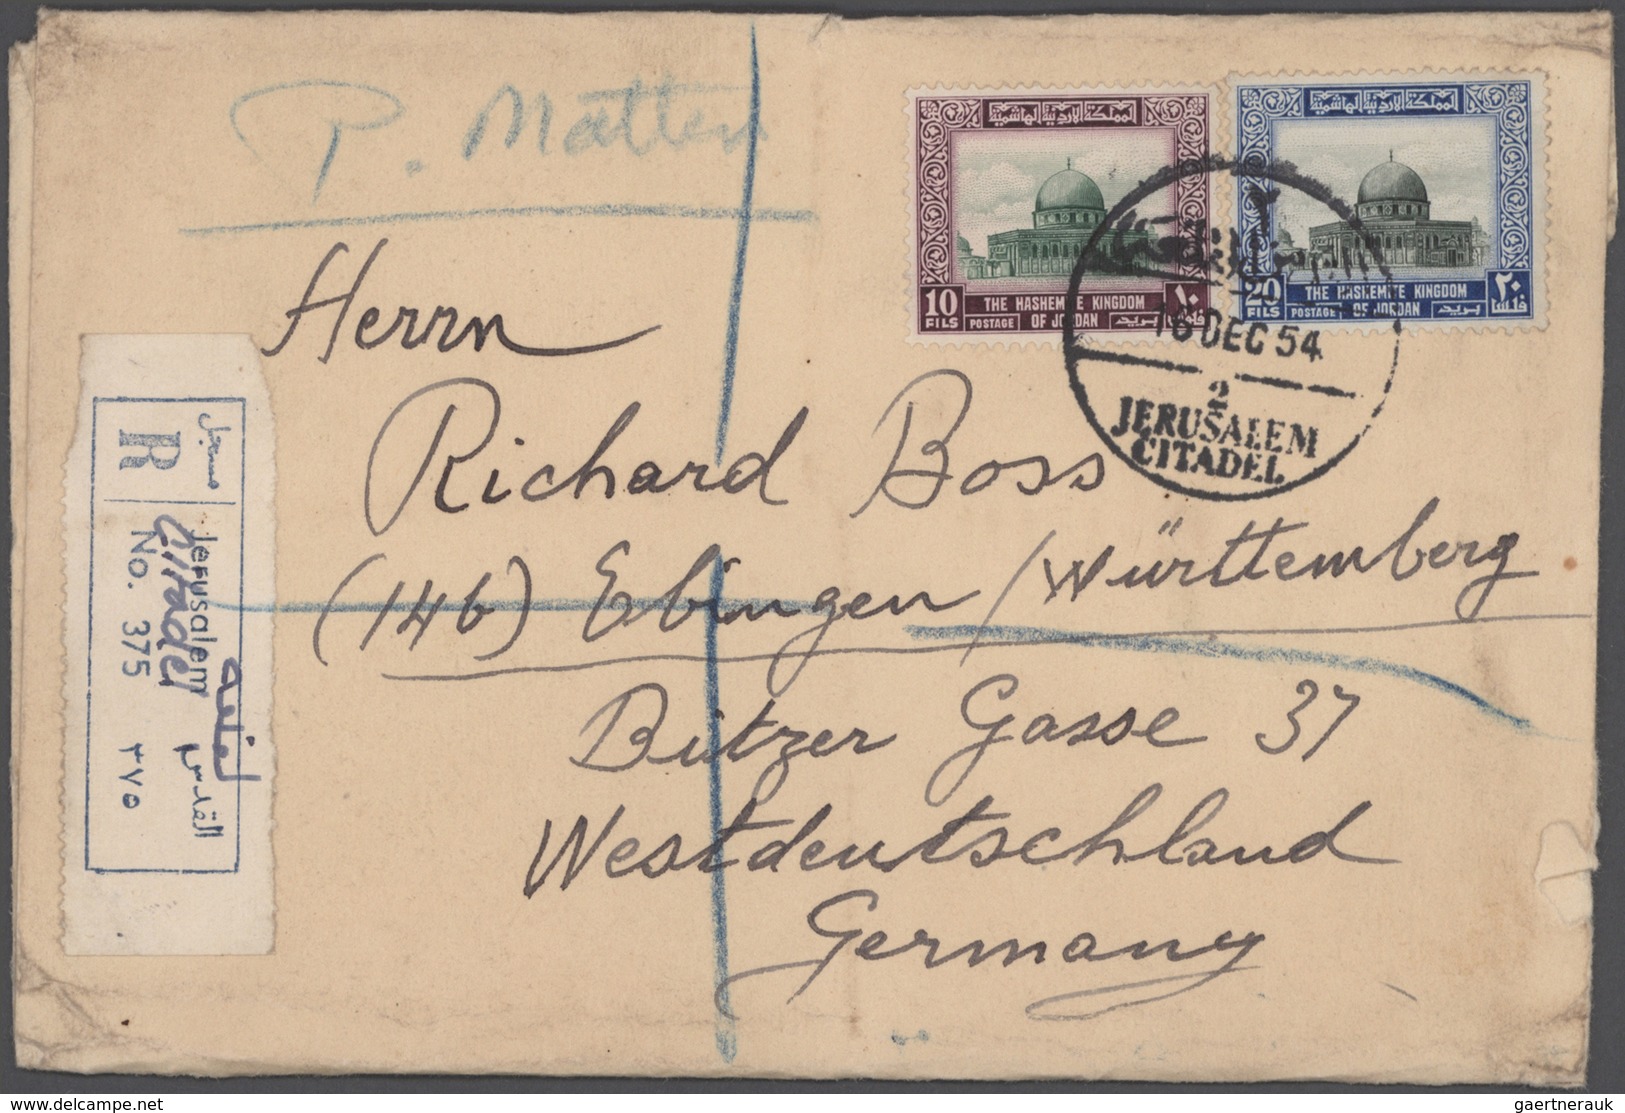 P. Matten
المملكة الاردنية الهاشمية
10 FILS
THE HASHEMITE KINGDOM
POSTAGE OF JORDAN بريد
١٠ فلس
المملكة الاردنية الهاشمية
20 FILS
THE HASHEMITE KINGDOM
POSTAGE OF JORDAN بريد
٢٠ فلسا
16 DEC 54
2
JERUSALEM
CITADEL
Herrn
Richard Boss
(14b) Ebingen / Württemberg
Bitzer Gasse 37
Westdeutschland
Germany
R مسجل
Jerusalem القدس
Citadel القلعة
No. 375 ٣٧٥
www.delcampe.net
gaertnerauk